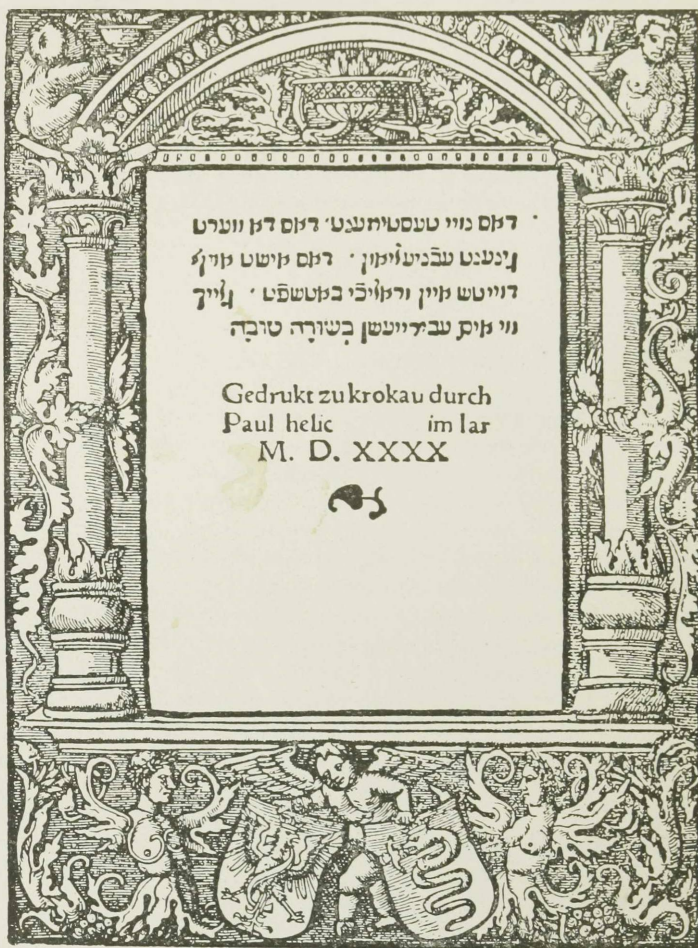 דאס נויי טעסטאמענט · דאס דא ווערט
גינענט עבֿנגעליאון · דאס אישט אויף
דוייטש איין ורואליכֿי באטשפֿט · גלייך
ווי אים עברייעשן בְשׂוּרָה טוֹבָה
Gedrukt zu krokau durch
Paul helic im Iar
M. D. XXXX